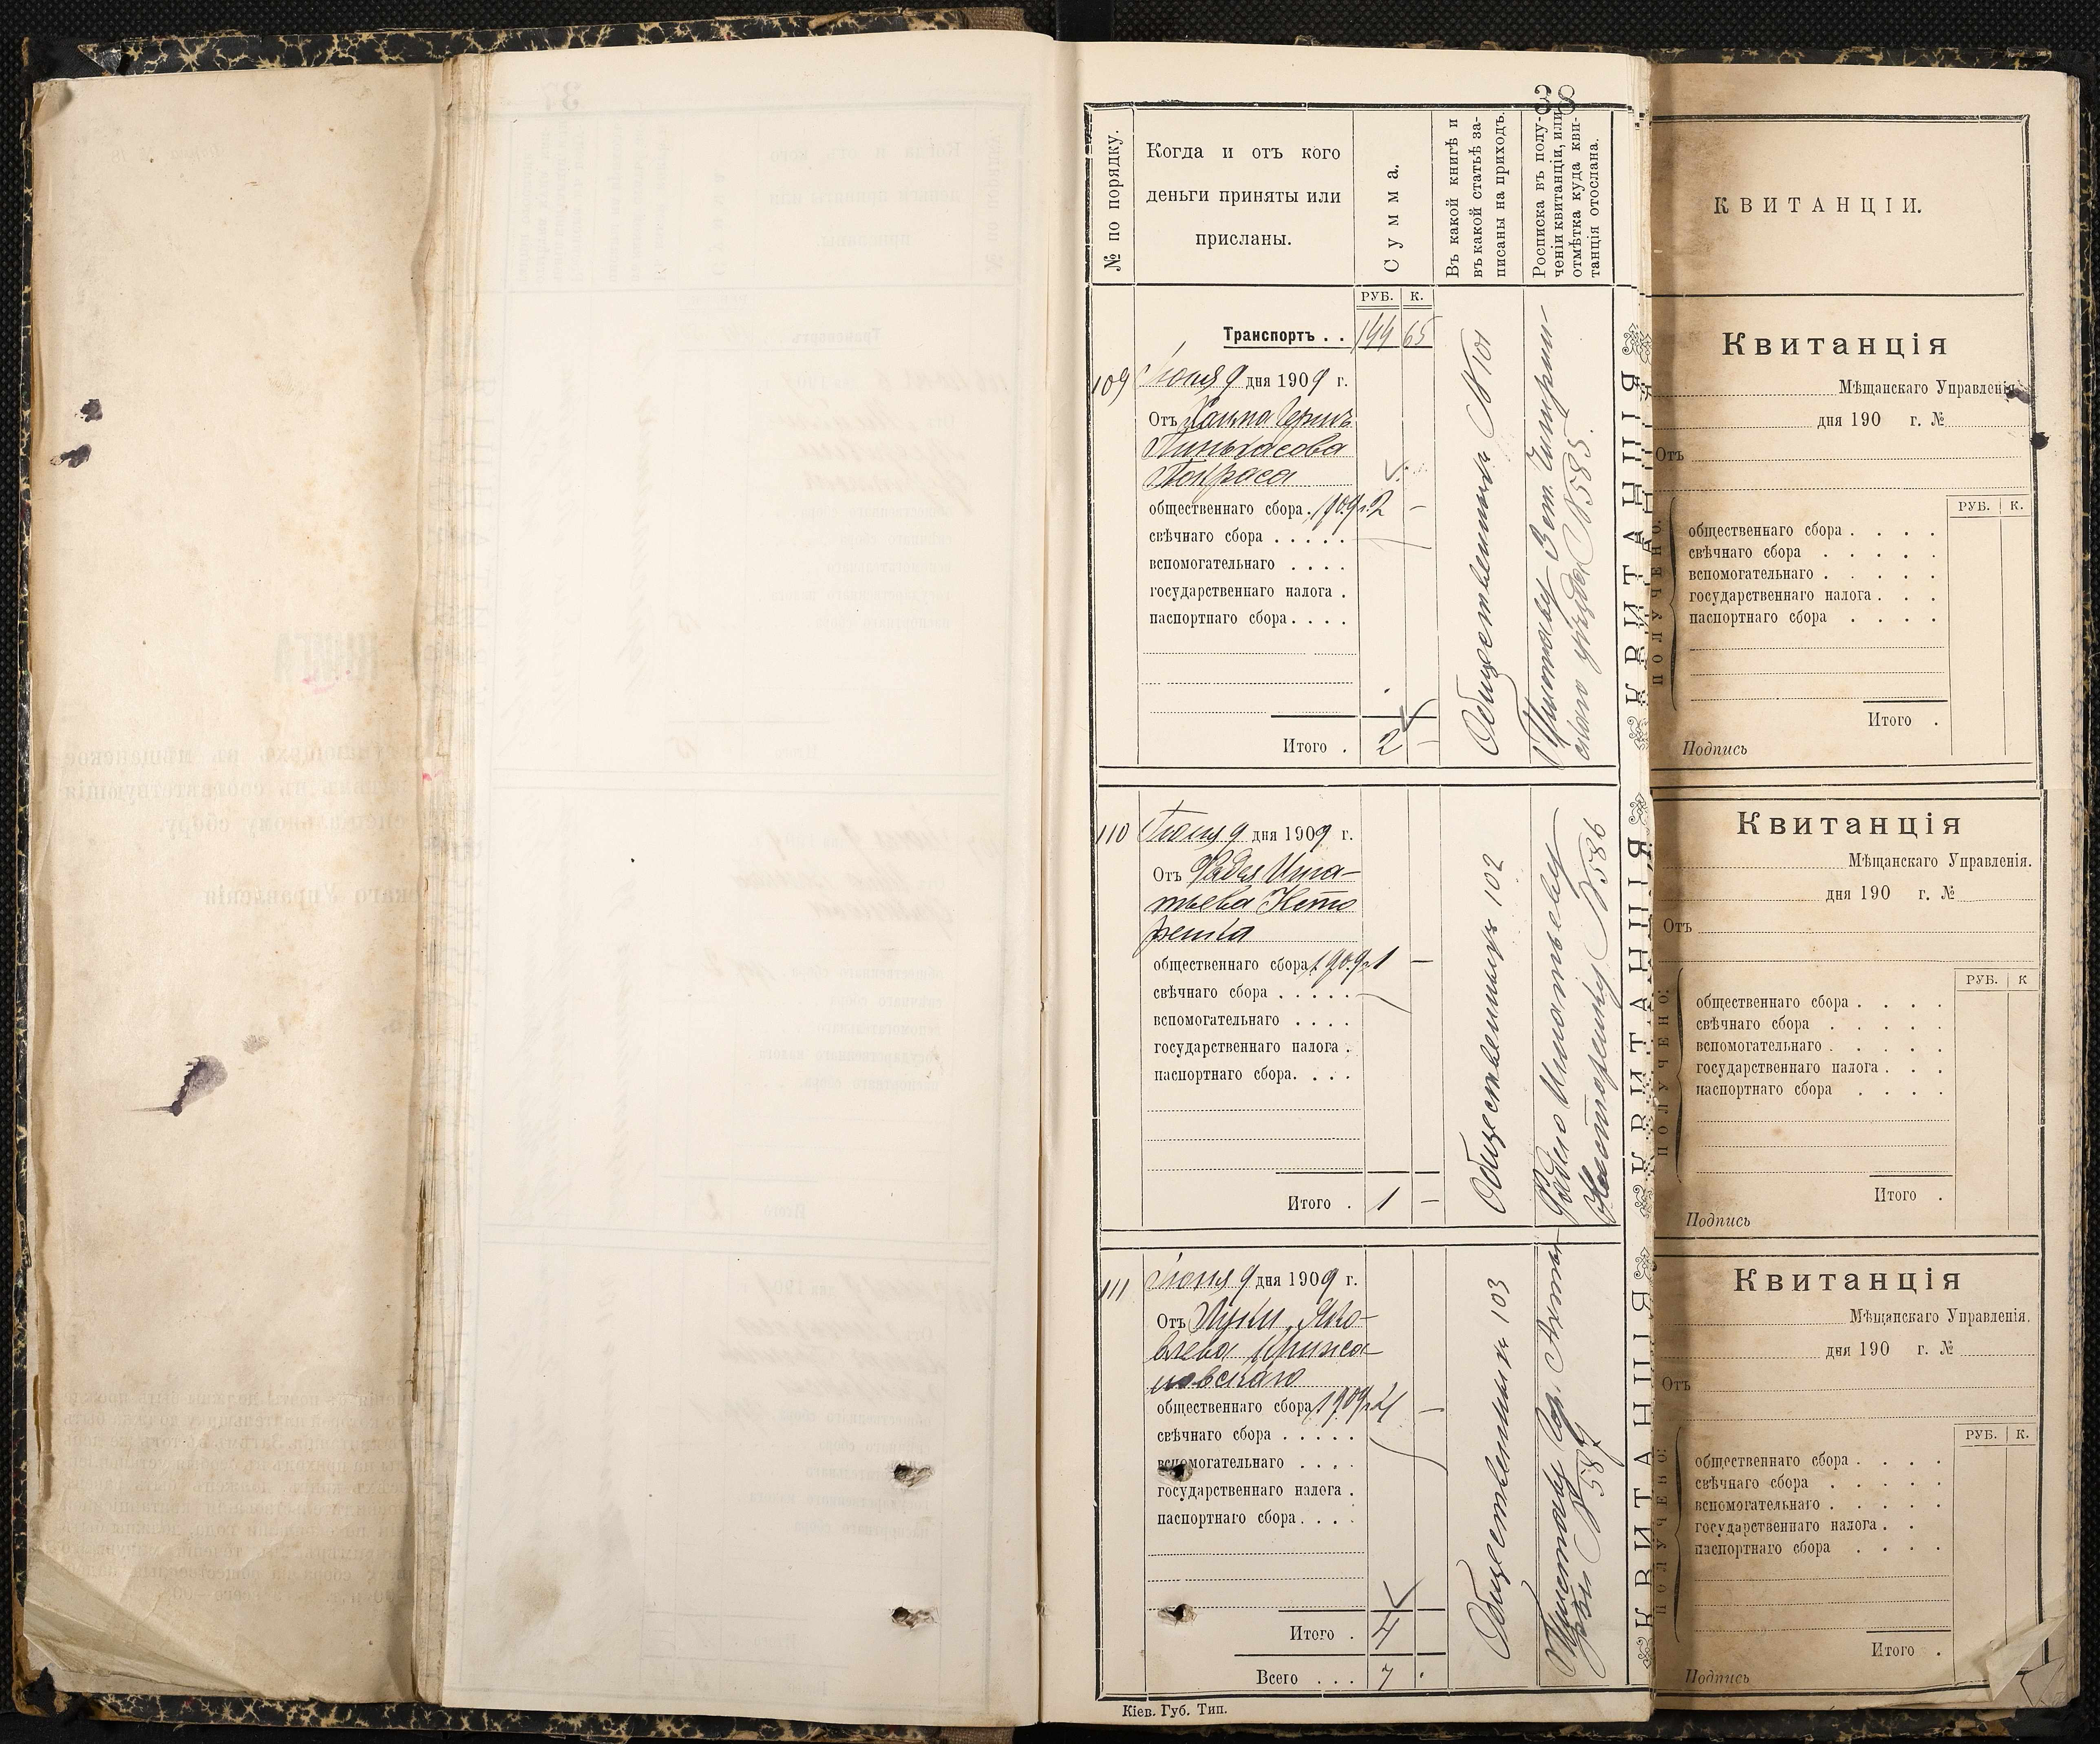 38
№ по порядку.
Когда и отъ кого
деньги приняты или
присланы.
Сумма.
Въ какой книгѣ и
въ какой статьѣ за-
писаны на приходъ.
Росписка въ полу-
ченіи квитанціи, или
отмѣтка куда кви-
танція отослана.
РУБ. К.
Транспортъ . . 144 65
109 Іюня 9 дня 1909 г.
Отъ Хаима Герша
Пинхасова
Покраса
общественнаго сбора . 1909 г. 2 —
свѣчнаго сбора . . . . .
вспомогательнаго . . . .
государственнаго налога .
паспортнаго сбора . . . .
Итого . 2 —
Общественныхъ № 101
Приставу 3 ст. Чигирин-
скаго уѣзда № 585.
110 Іюня 9 дня 1909 г.
Отъ Фадея Игна-
тьева Несто
ренка
общественнаго сбора 1909 г. 1 —
свѣчнаго сбора . . . . .
вспомогательнаго . . . .
государственнаго налога .
паспортнаго сбора . . . .
Итого . 1 —
Общественныхъ 102
Фадею Игнатьеву
Нестеренку № 586
111 Іюня 9 дня 1909 г.
Отъ Луки Яко-
влева Крижа-
новскаго
общественнаго сбора 1909 г. 4 —
свѣчнаго сбора . . . . .
вспомогательнаго . . . .
государственнаго налога .
паспортнаго сбора . . . .
Итого . 4
Всего . . . 7 .
Общественныхъ 103
Приставу гор.
№ 587
Кіев. Губ. Тип.
КВИТАНЦІЯ
КВИТАНЦІЯ
КВИТАНЦІЯ
КВИТАНЦІИ.
Квитанція
Мѣщанскаго Управленія
дня 190 г. №
Отъ
ПОЛУЧЕНО:
РУБ. К.
общественнаго сбора . . . .
свѣчнаго сбора . . . . .
вспомогательнаго . . . . .
государственнаго налога . . .
паспортнаго сбора . . . .
Итого .
Подпись
Квитанція
Мѣщанскаго Управленія.
дня 190 г. №
Отъ
ПОЛУЧЕНО:
РУБ. К
общественнаго сбора . . . .
свѣчнаго сбора . . . . .
вспомогательнаго . . . . .
государственнаго налога . . .
паспортнаго сбора . . . .
Итого .
Подпись
Квитанція
Мѣщанскаго Управленія.
дня 190 г. №
Отъ
ПОЛУЧЕНО:
РУБ. К.
общественнаго сбора . . . .
свѣчнаго сбора . . . . .
вспомогательнаго . . . . .
государственнаго налога . .
паспортнаго сбора . . . .
Итого .
Подпись